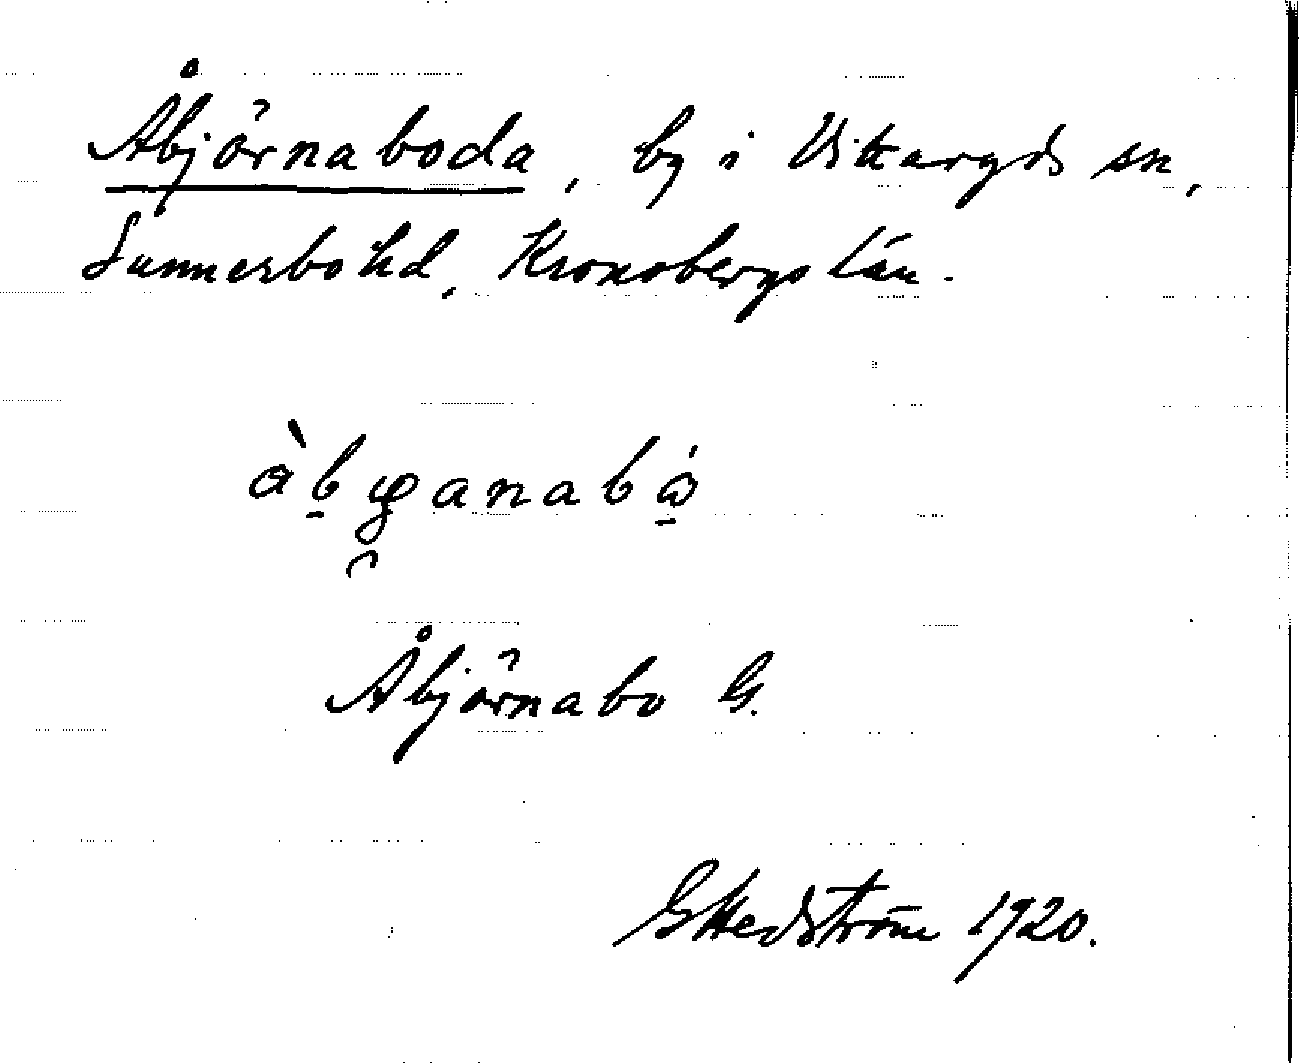 Åbjörnaboda, by i Vittaryds sn,
Sunnerbo hd, Kronobergs län.
Åbjörnabo G.
G Hedström 1920.